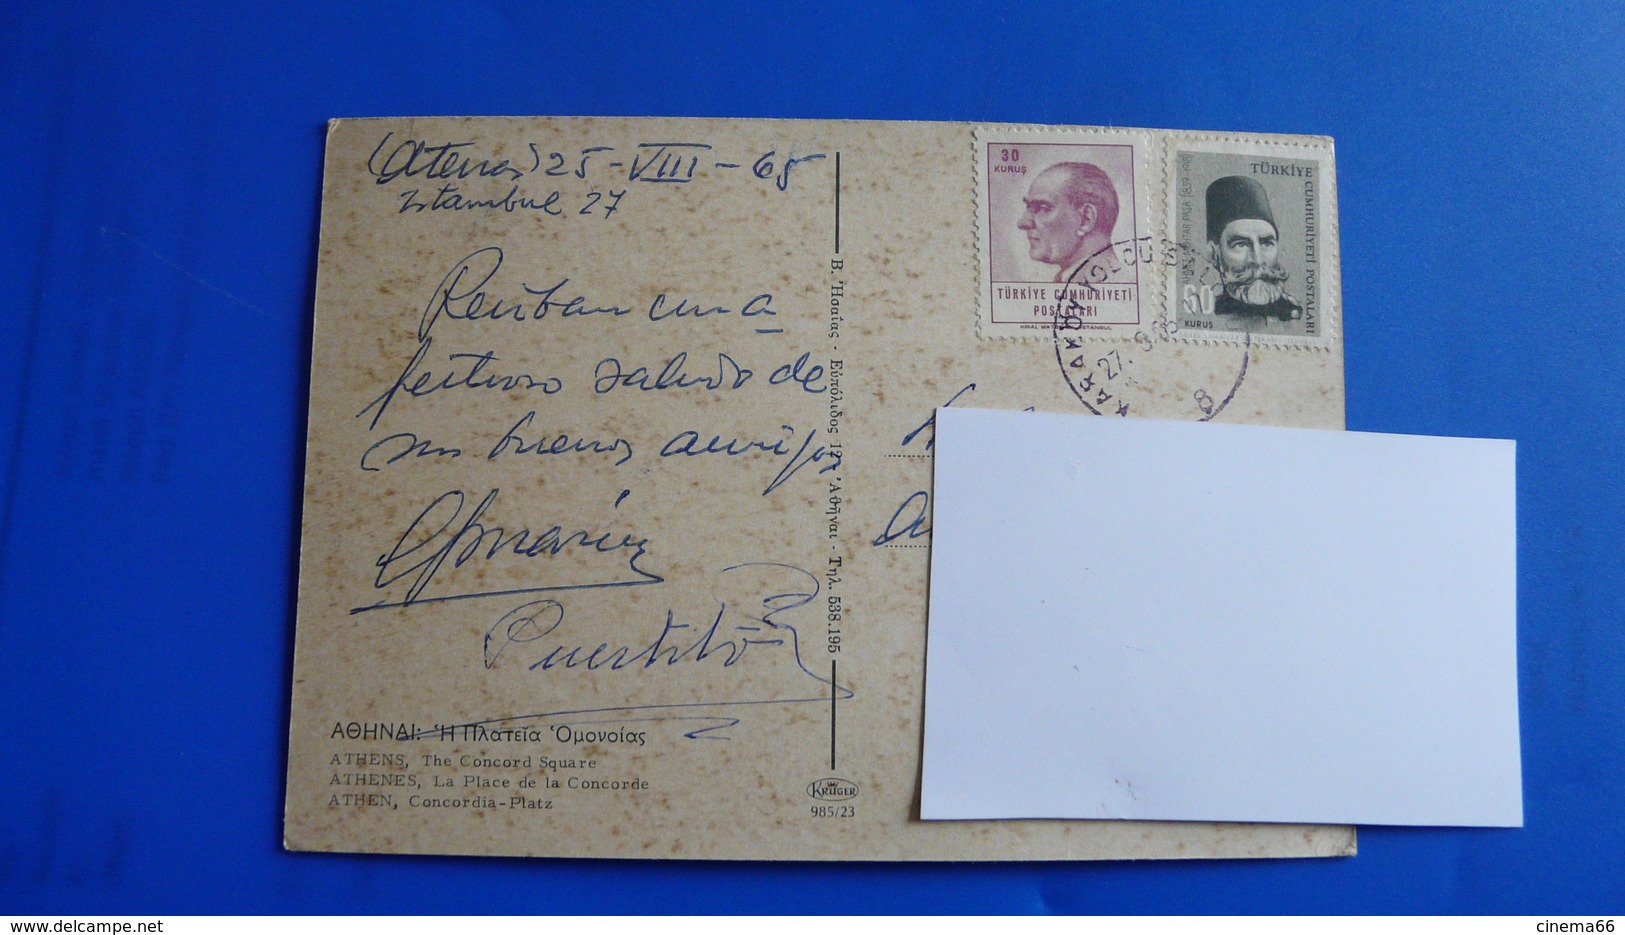 (Atenas) 25-VIII-65
Istambul 27
Reciban una
afectuoso saludo de
sus buenos amigos
Puertito
ΑΘΗΝΑΙ: Ἡ Πλατεῖα Ὁμονοίας
ATHENS, The Concord Square
ATHENES, La Place de la Concorde
ATHEN, Concordia-Platz
Β. Ἡσαΐας - Εὐπόλιδος 12, Ἀθῆναι - Τηλ. 538.195
KRÜGER
985/23
30
KURUŞ
TÜRKİYE CUMHURİYETİ
POSTALARI
TÜRKİYE CUMHURİYETİ POSTALARI
60
KURUŞ
KARAKÖY YOLCU
27.
cinema66